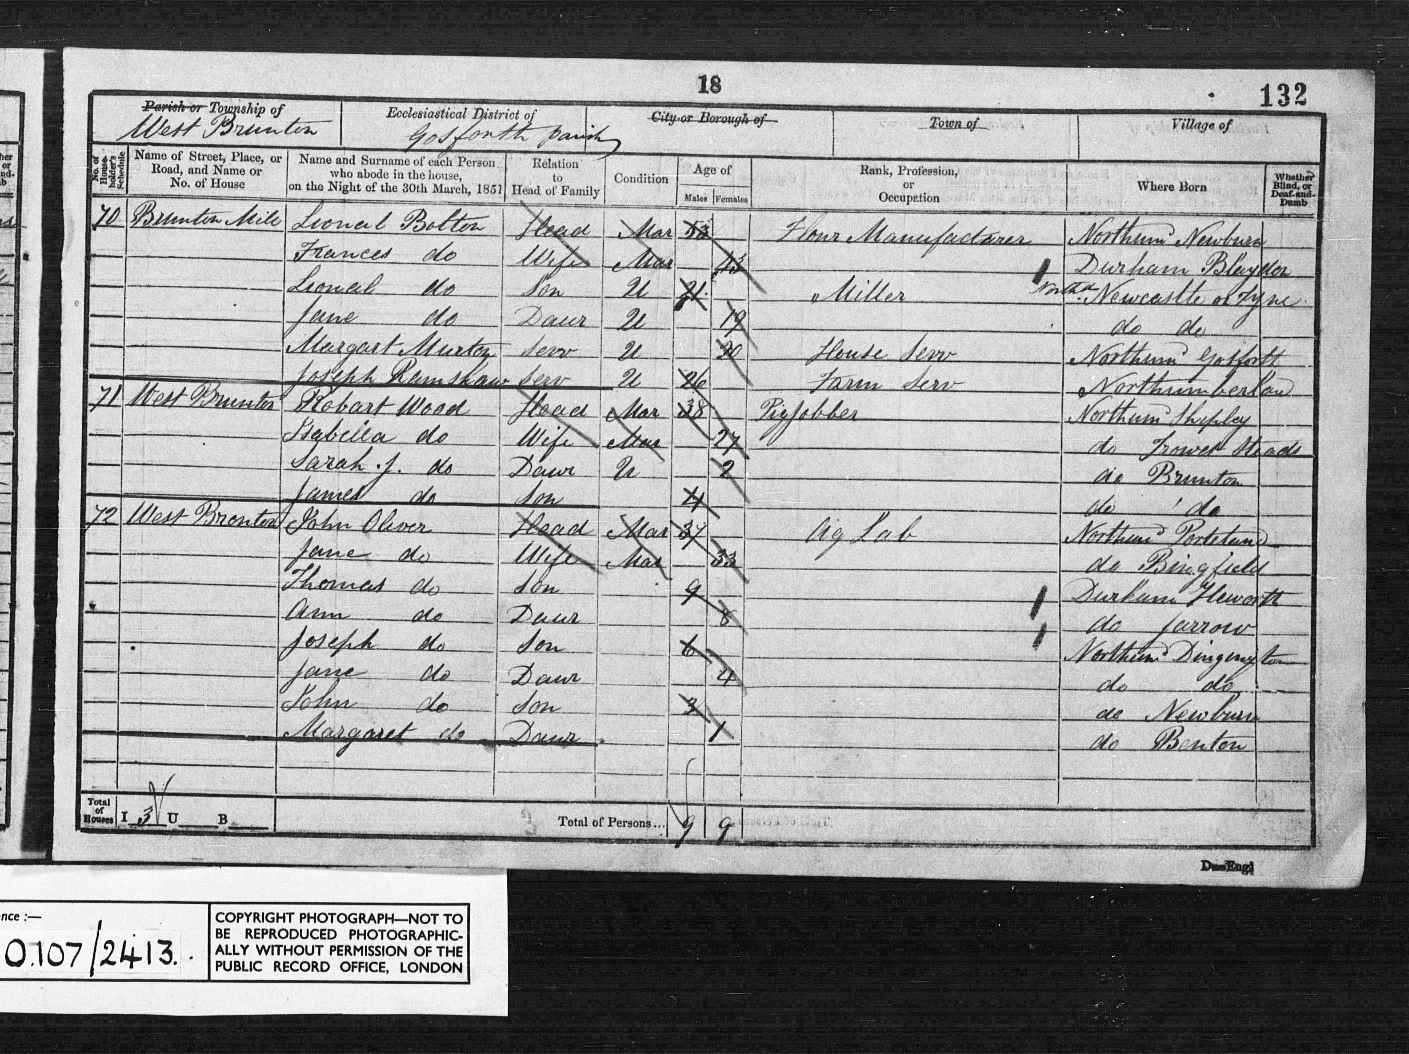 18
132
Parish or Township of
West Brunton
Ecclesiastical District of
Gosforth Parish
City or Borough of
Town of
Village of
No. of House-holder's Schedule
Name of Street, Place, or Road, and Name or No. of House
Name and Surname of each Person who abode in the house, on the Night of the 30th March, 1851
Relation to Head of Family
Condition
Age of
Males Females
Rank, Profession, or Occupation
Where Born
Whether Blind, or Deaf-and-Dumb
70 Brunton Mill Lioneal Bolton Head Mar Flour Manufacturer Northumd Newburn
Frances do Wife Mar Durham Blaydon
Lioneal do Son U 21 Miller Newcastle on Tyne
Jane do Daur U 19 do do
Margart Serv U 20 House Serv Northumd Gosforth
Joseph Ramshaw Serv U 26 Farm Serv Northumberland
71 West Brunton Robart Wood Head Mar 38 Pig Jobber Northumd Shepley
Isabella do Wife Mar 27 do Steads
Sarah J. do Daur U 2 do Brunton
James do Son 4 do do
72 West Brenton John Oliver Head Mar 37 Ag Lab Northumd
Jane do Wife Mar 33 do Bingfield
Thomas do Son 9 Durham Heworth
Ann do Daur 8 do Jarrow
Joseph do Son 6 Northum
Jane do Daur 4 do do
John do Son 3 do Newburn
Margaret do Daur 1 do Benton
Total of Houses I 3 U B
Total of Persons... 9 9
Duo Eng
nce :—
0.107/2413.
COPYRIGHT PHOTOGRAPH—NOT TO
BE REPRODUCED PHOTOGRAPHIC-
ALLY WITHOUT PERMISSION OF THE
PUBLIC RECORD OFFICE, LONDON